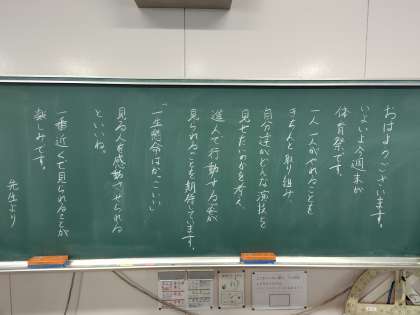 おはようございます。
いよいよ今週末が
体育祭です。
一人一人がやれることを
きちんと取り組み
自分達がどんな演技を
見せたいのかを考え、
進んで行動する姿が
見られることを期待しています。
「一生懸命はかっこいい」
見る人を感動させられる
といいね。
一番近くで見られることが
楽しみです。
先生より